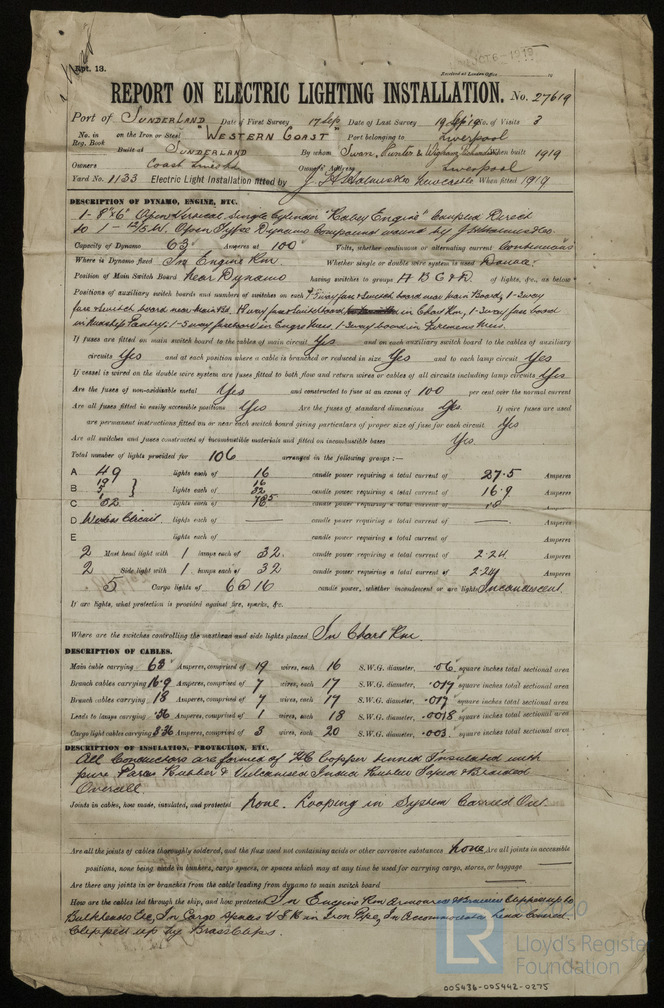 Rpt. 13.
OCT. 6 - 1919
Received at London Office
REPORT ON ELECTRIC LIGHTING INSTALLATION. No. 27619
Port of Sunderland Date of First Survey 17 Sep Date of Last Survey 19 Sep '19 No. of Visits 3
No. in Reg. Book on the Iron or Steel "Western Coast" Port belonging to Liverpool
Built at Sunderland By whom Swan, Hunter & Wigham Richardson When built 1919
Owners Coast Lines Ltd Owners' Address Liverpool
Yard No. 1133 Electric Light Installation fitted by J. H. Holmes & Co Newcastle When fitted 1919
DESCRIPTION OF DYNAMO, ENGINE, ETC.
1 - 8" x 6" Open Vertical Single Cylinder Engine" Coupled Direct
to 1 - Open Type Dynamo Compound wound by J. H. Holmes & Co.
Capacity of Dynamo 63 Amperes at 100 Volts, whether continuous or alternating current Continuous
Where is Dynamo fixed In Engine Rm. Whether single or double wire system is used Double
Position of Main Switch Board Near Dynamo having switches to groups A B C & D. of lights, &c., as below
Positions of auxiliary switch boards and numbers of switches on each 7 way fuse & switch board near main Board, 1 - 3 way
fuse & switch board near Main Bd. way fuse & switch board in Chart Rm, 1 - 3 way fuse board
in Midship Pantry; 1 - 5 way fuseboard in Engrs Mess. 1 - 3 way board in Firemens Mess.
If fuses are fitted on main switch board to the cables of main circuit Yes and on each auxiliary switch board to the cables of auxiliary
circuits Yes and at each position where a cable is branched or reduced in size Yes and to each lamp circuit Yes
If vessel is wired on the double wire system are fuses fitted to both flow and return wires or cables of all circuits including lamp circuits Yes
Are the fuses of non-oxidizable metal Yes and constructed to fuse at an excess of 100 per cent over the normal current
Are all fuses fitted in easily accessible positions Yes Are the fuses of standard dimensions Yes If wire fuses are used
are permanent instructions fitted on or near each switch board giving particulars of proper size of fuse for each circuit Yes
Are all switches and fuses constructed of incombustible materials and fitted on incombustible bases Yes.
Total number of lights provided for 106 arranged in the following groups :—
A 49 lights each of 16 candle power requiring a total current of 27.5 Amperes
B 19 } lights each of 16 32 candle power requiring a total current of 16.9 Amperes
C 32 lights each of 16 candle power requiring a total current of 18 Amperes
D Wireless Circuit. lights each of — candle power requiring a total current of — Amperes
E lights each of candle power requiring a total current of Amperes
2 Mast head light with 1 lamps each of 32. candle power requiring a total current of 2.24 Amperes
2 Side light with 1. lamps each of 32 candle power requiring a total current of 2.24 Amperes
5 Cargo lights of 6 @ 16 candle power, whether incandescent or arc lights Incandescent.
If arc lights, what protection is provided against fire, sparks, &c.
Where are the switches controlling the masthead and side lights placed In Chart Rm.
DESCRIPTION OF CABLES.
Main cable carrying 63 Amperes, comprised of 19 wires, each 16 S.W.G. diameter, .06 square inches total sectional area
Branch cables carrying 16.9 Amperes, comprised of 7 wires, each 17 S.W.G. diameter, .017 square inches total sectional area
Branch cables carrying 18 Amperes, comprised of 7 wires, each 17 S.W.G. diameter, .017 square inches total sectional area
Leads to lamps carrying .56 Amperes, comprised of 1 wires, each 18 S.W.G. diameter, .0018 square inches total sectional area
Cargo light cables carrying 3.36 Amperes, comprised of 3 wires, each 20 S.W.G. diameter, .003 square inches total sectional area
DESCRIPTION OF INSULATION, PROTECTION, ETC.
All Conductors are formed of HC Copper tinned Insulated with
pure Para Rubber & Vulcanised India Rubber Taped & Braided
Overall.
Joints in cables, how made, insulated, and protected none. Looping in System Carried Out.
Are all the joints of cables thoroughly soldered, and the flux used not containing acids or other corrosive substances none Are all joints in accessible
positions, none being made in bunkers, cargo spaces, or spaces which may at any time be used for carrying cargo, stores, or baggage —
Are there any joints in or branches from the cable leading from dynamo to main switch board —
How are the cables led through the ship, and how protected In Engine Rm Armoured & Braided Clipped up to
Bulkheads Etc, In Cargo Spaces in Iron Pipe, In Accommodation Lead Covered
Clipped up by Brass Clips.
LR
Lloyd's Register
Foundation
005436-005442-0275